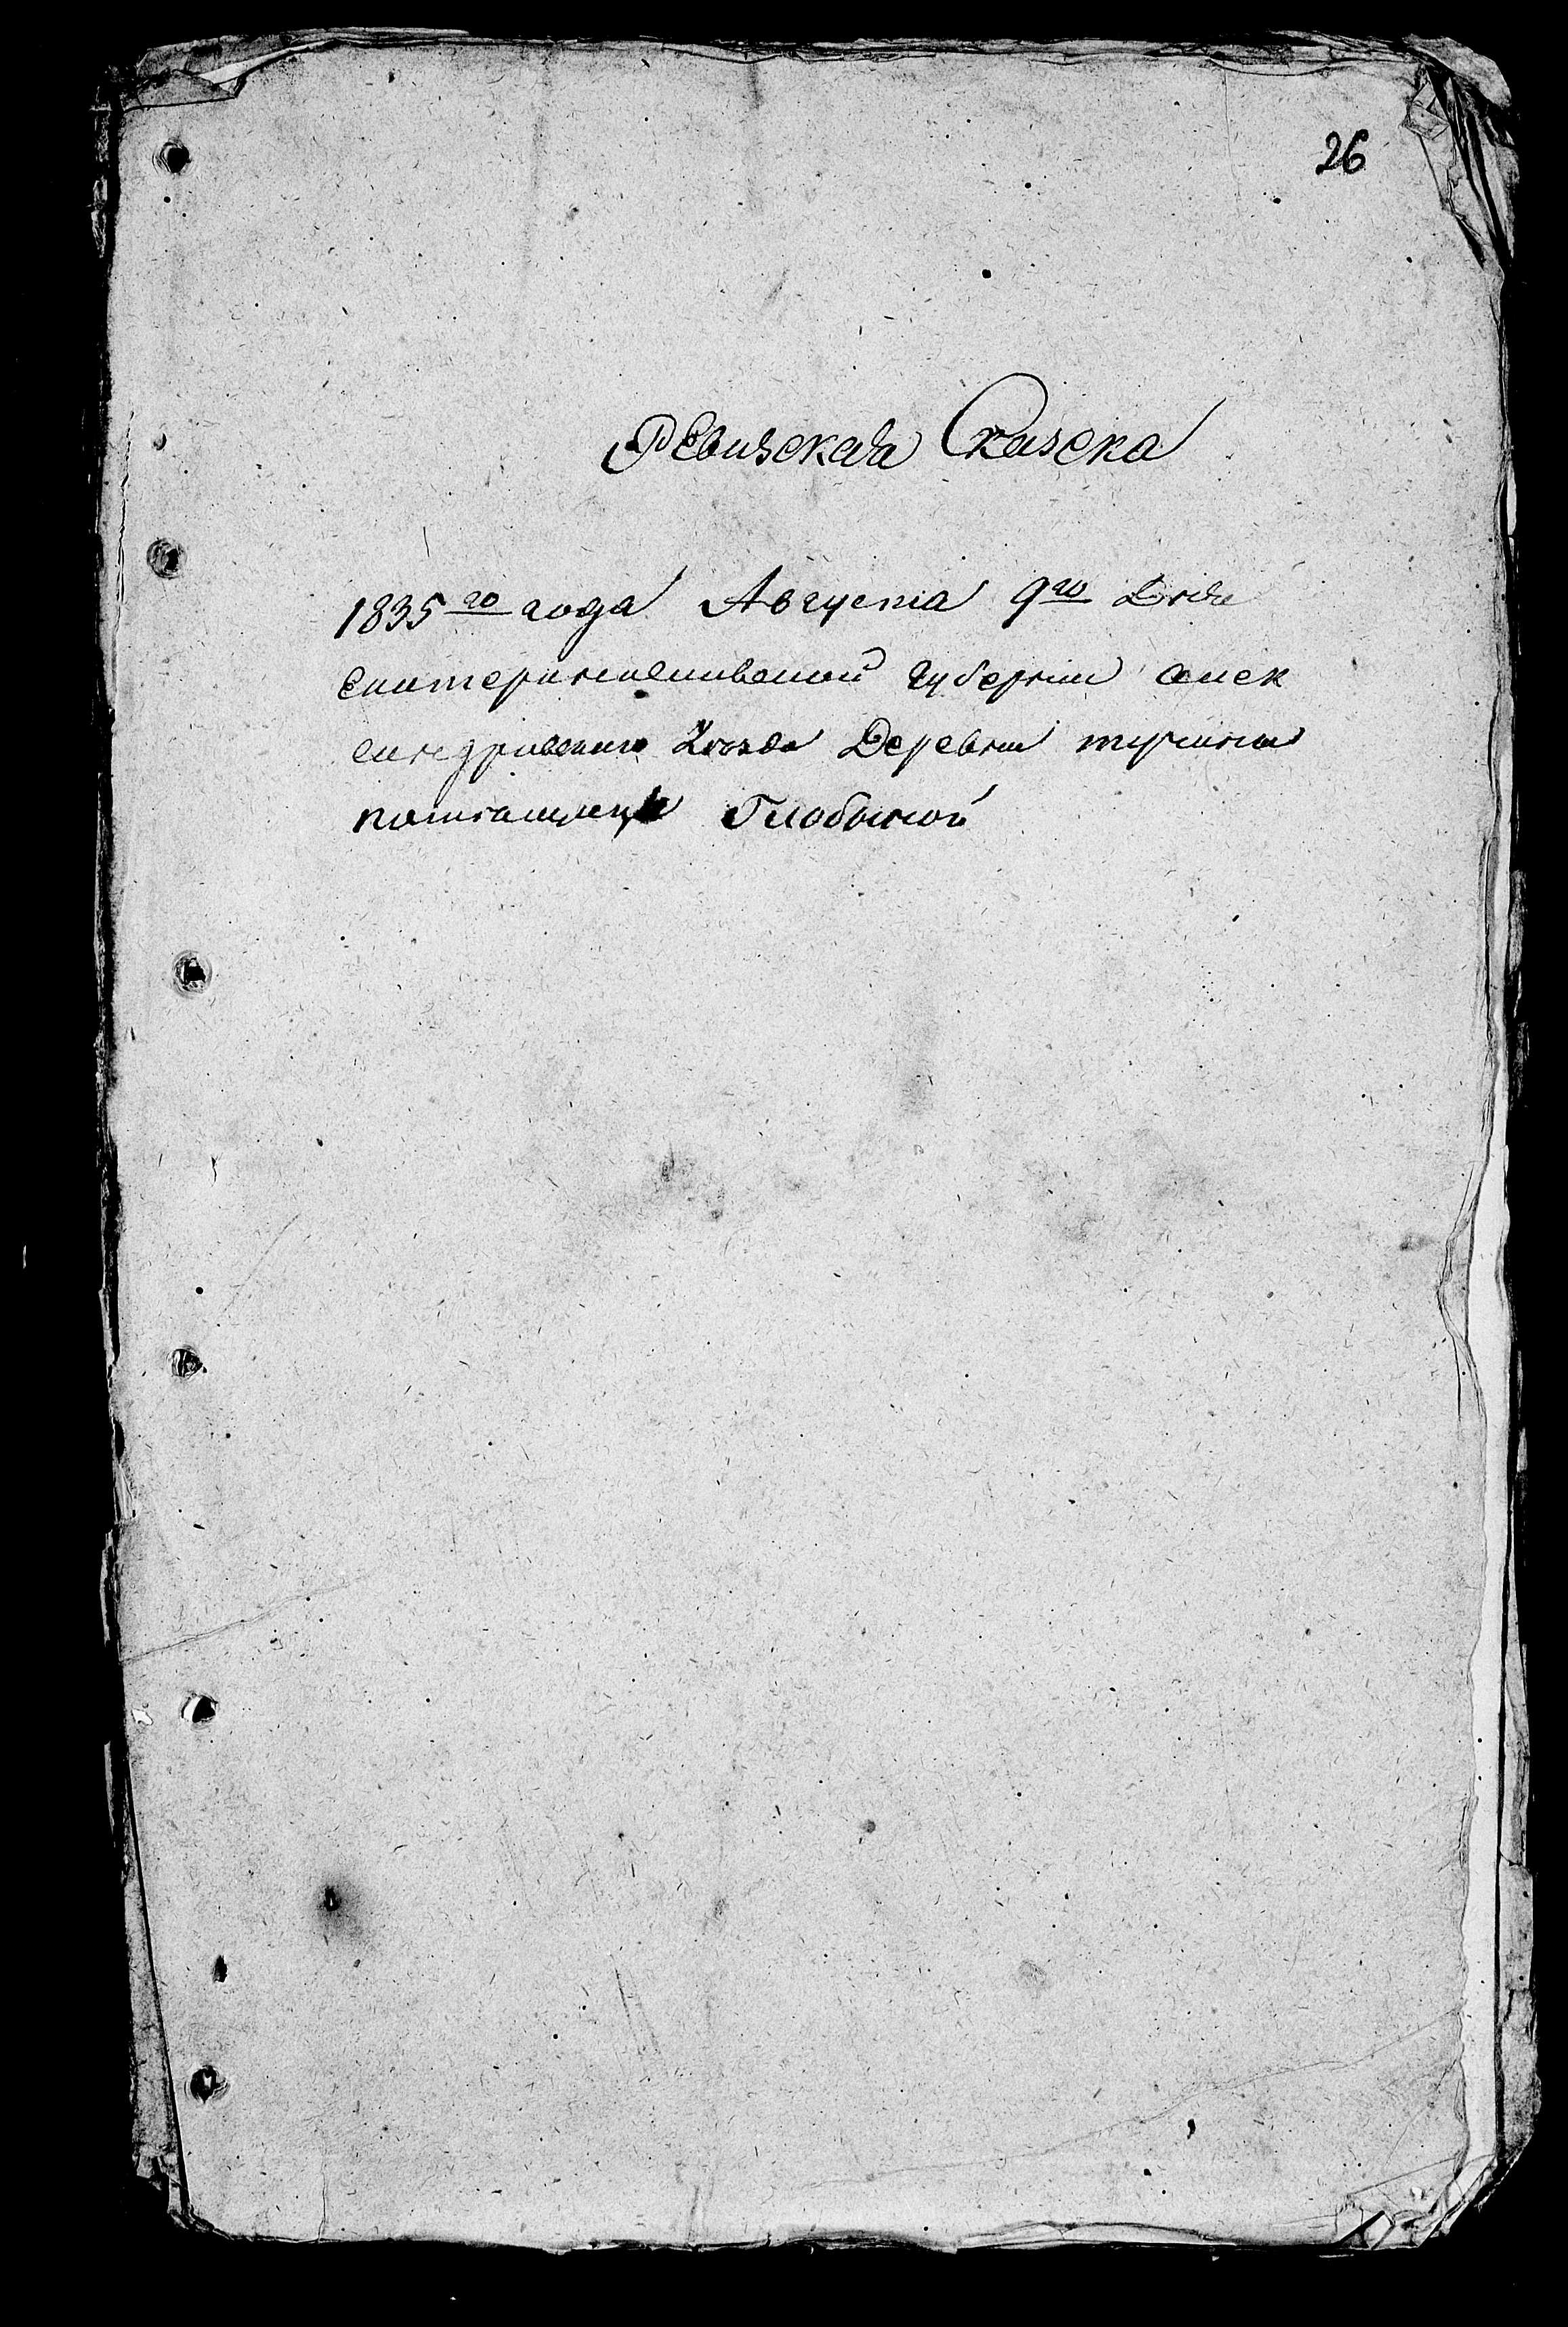 26
Ревизская Сказска
1835го года Августа 9го Дня
Екатеринославской губернии алек
сандривскаго Уезда Деревни
помещицы Глобиной